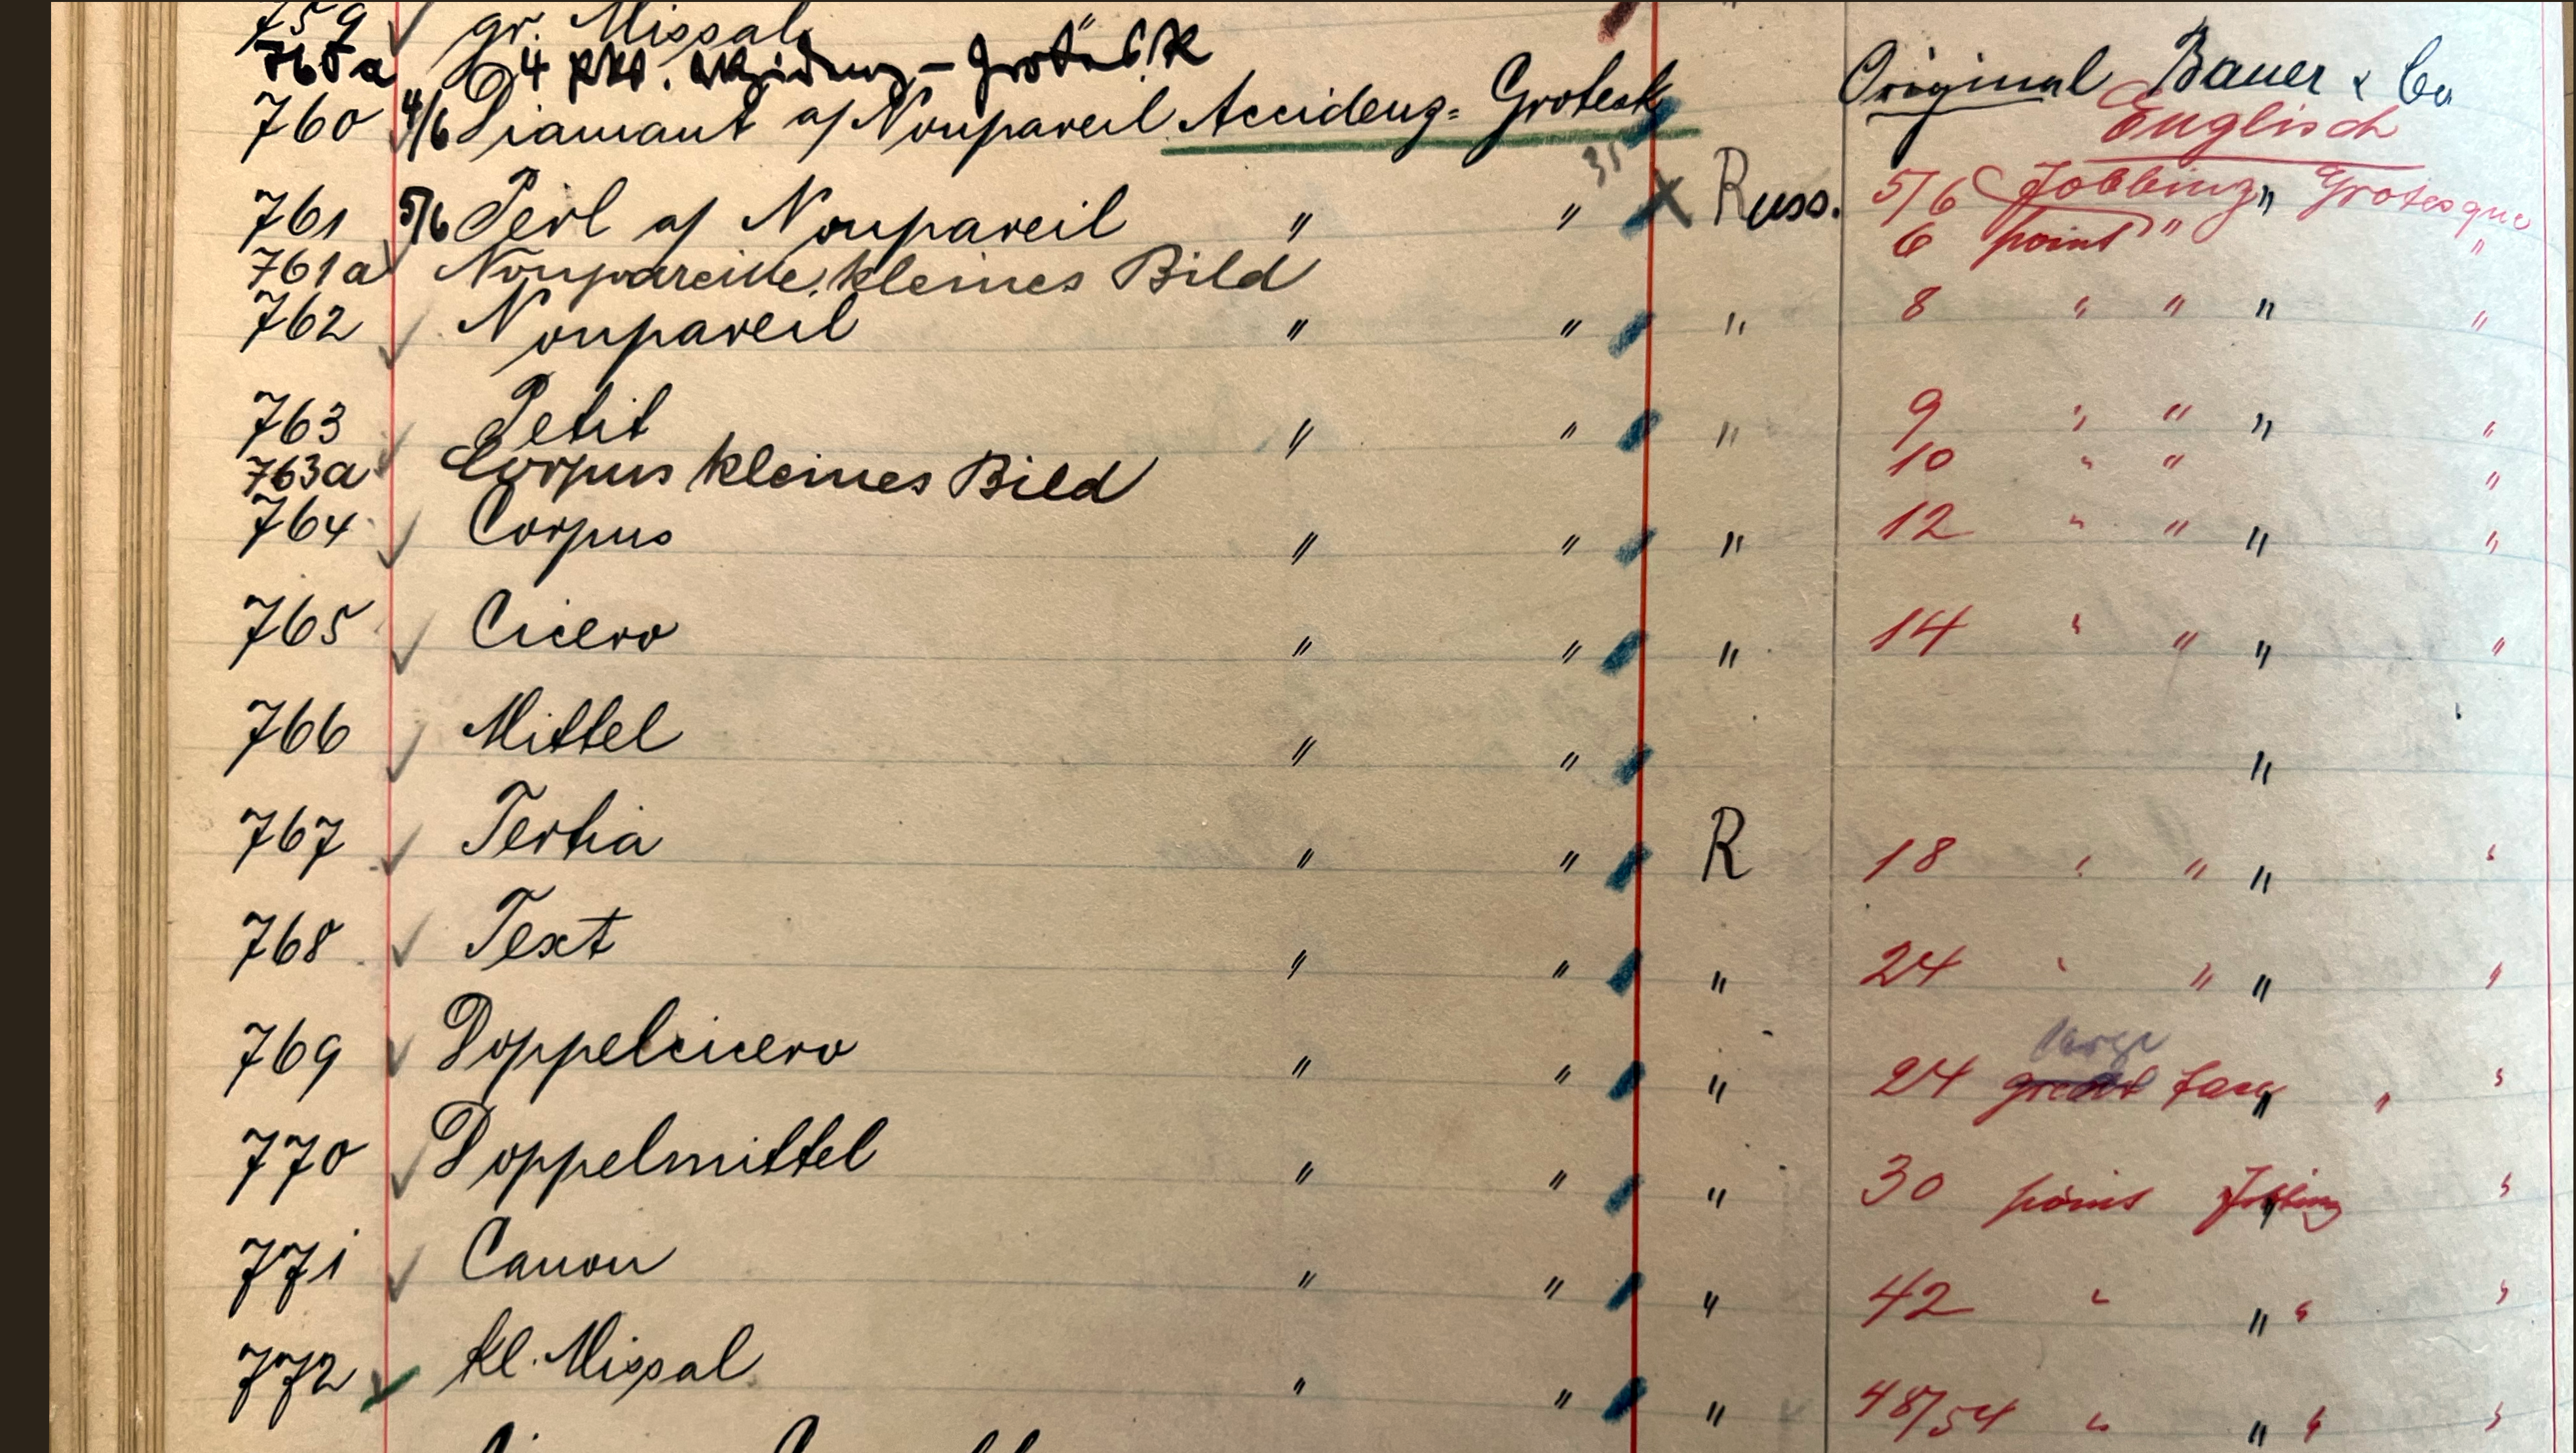 759 gr. Missal "
760a 4 Pkt. Akzidenz-Grotesk
760 4/6 Diamant a/ Nonpareil Accidenz=Grotesk Original Bauer & Co
Englisch
35
761 5/6 Perl a/ Nonpareil " " X Russ. 5/6 Jobbing " Grotesque
6 point " "
761a Nonpareille, kleines Bild
762 Nonpareil " " " 8 " " " "
763 Petit " " " 9 " " " "
763a Corpus kleines Bild 10 " " "
764 Corpus " " " 12 " " " "
765 Cicero " " " 14 " " " "
766 Mittel " " "
767 Tertia " " R 18 " " " "
768 Text " " " 24 " " " "
large
769 Doppelcicero " " " 24 great face " " "
770 Doppelmittel " " " 30 point Jobbing " "
771 Canon " " " 42 " " " "
772 kl. Missal " " " 48/54 " " " "